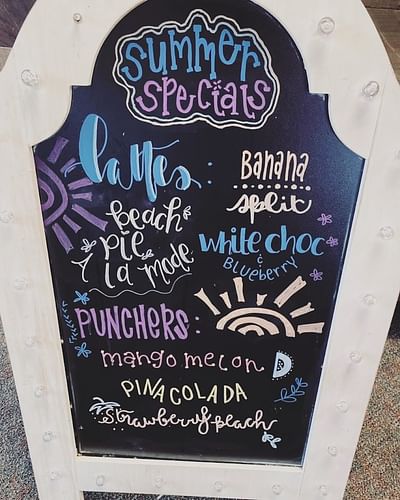 Summer
Specials
Lattes:
Banana
split
Peach
Pie
à la mode
white choc
&
Blueberry
PUNCHERS:
mango melon
PINA COLADA
Strawberry peach